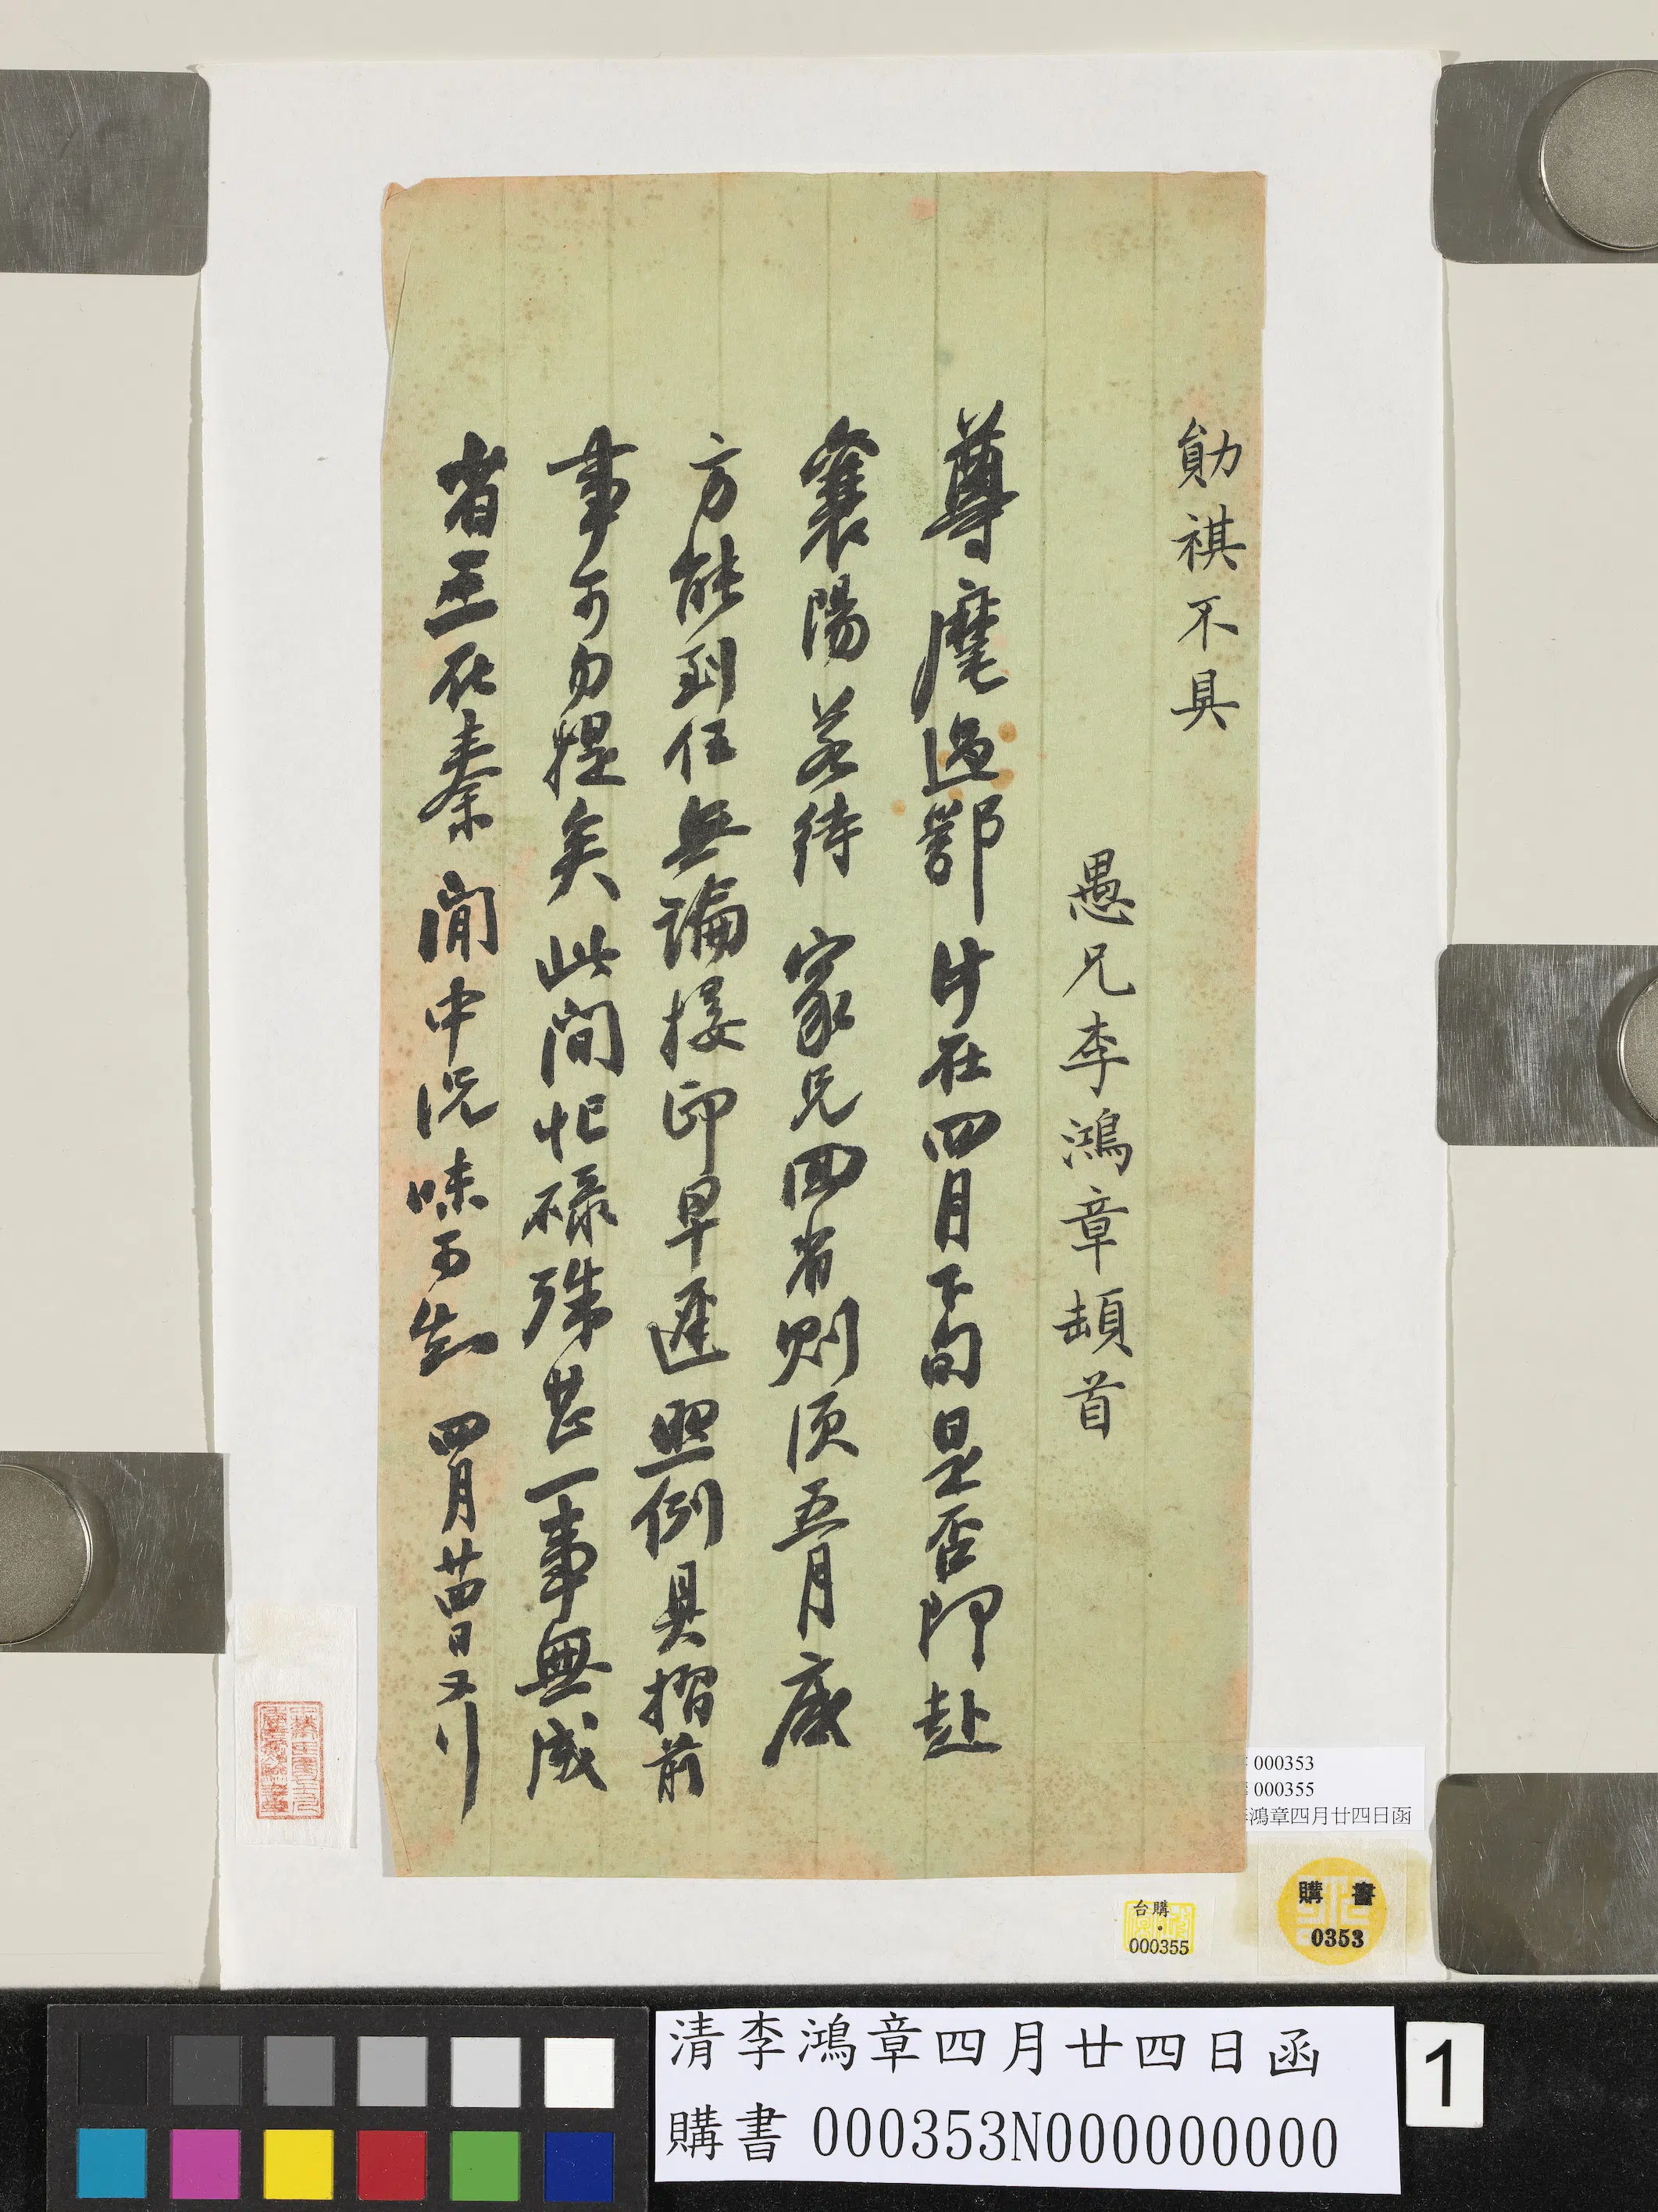 勛祺不具
愚兄李鴻章頓首
尊麾過鄂計在四月下旬是否即赴
襄陽若待 家兄回省則須五月底
方能到任無論接印早遲照例具摺前
事可勿提矣此間忙碌殊甚一事無成
省三在秦 閒中況味可知 四月廿四日又
000353
000355
鴻章四月廿四日函
購書
0353
台購
000355
清李鴻章四月廿四日函
購書 000353N000000000
1